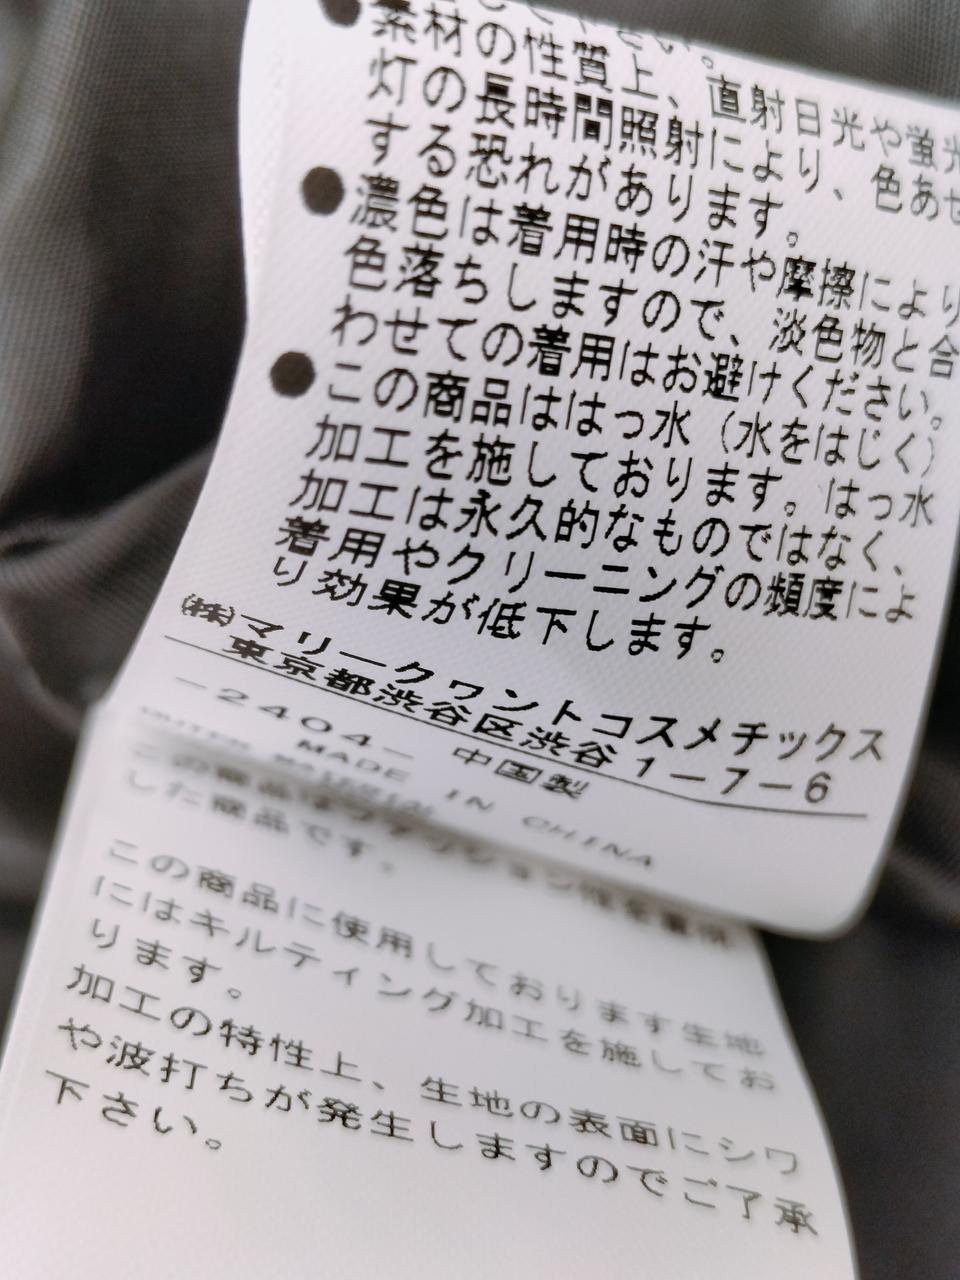 ●素材の性質上、直射日光や蛍光
灯の長時間照射により、色あせ
する恐れがあります。
●濃色は着用時の汗や摩擦により
色落ちしますので、淡色物と合
わせての着用はお避けください。
●この商品ははっ水（水をはじく）
加工を施しております。はっ水
加工は永久的なものではなく、
着用やクリーニングの頻度によ
り効果が低下します。
㈱マリークワントコスメチックス
東京都渋谷区渋谷1-7-6
-2404- 中国製
MADE IN CHINA
した商品です。
この商品に使用しております生地
にはキルティング加工を施してお
ります。
加工の特性上、生地の表面にシワ
や波打ちが発生しますのでご了承
下さい。